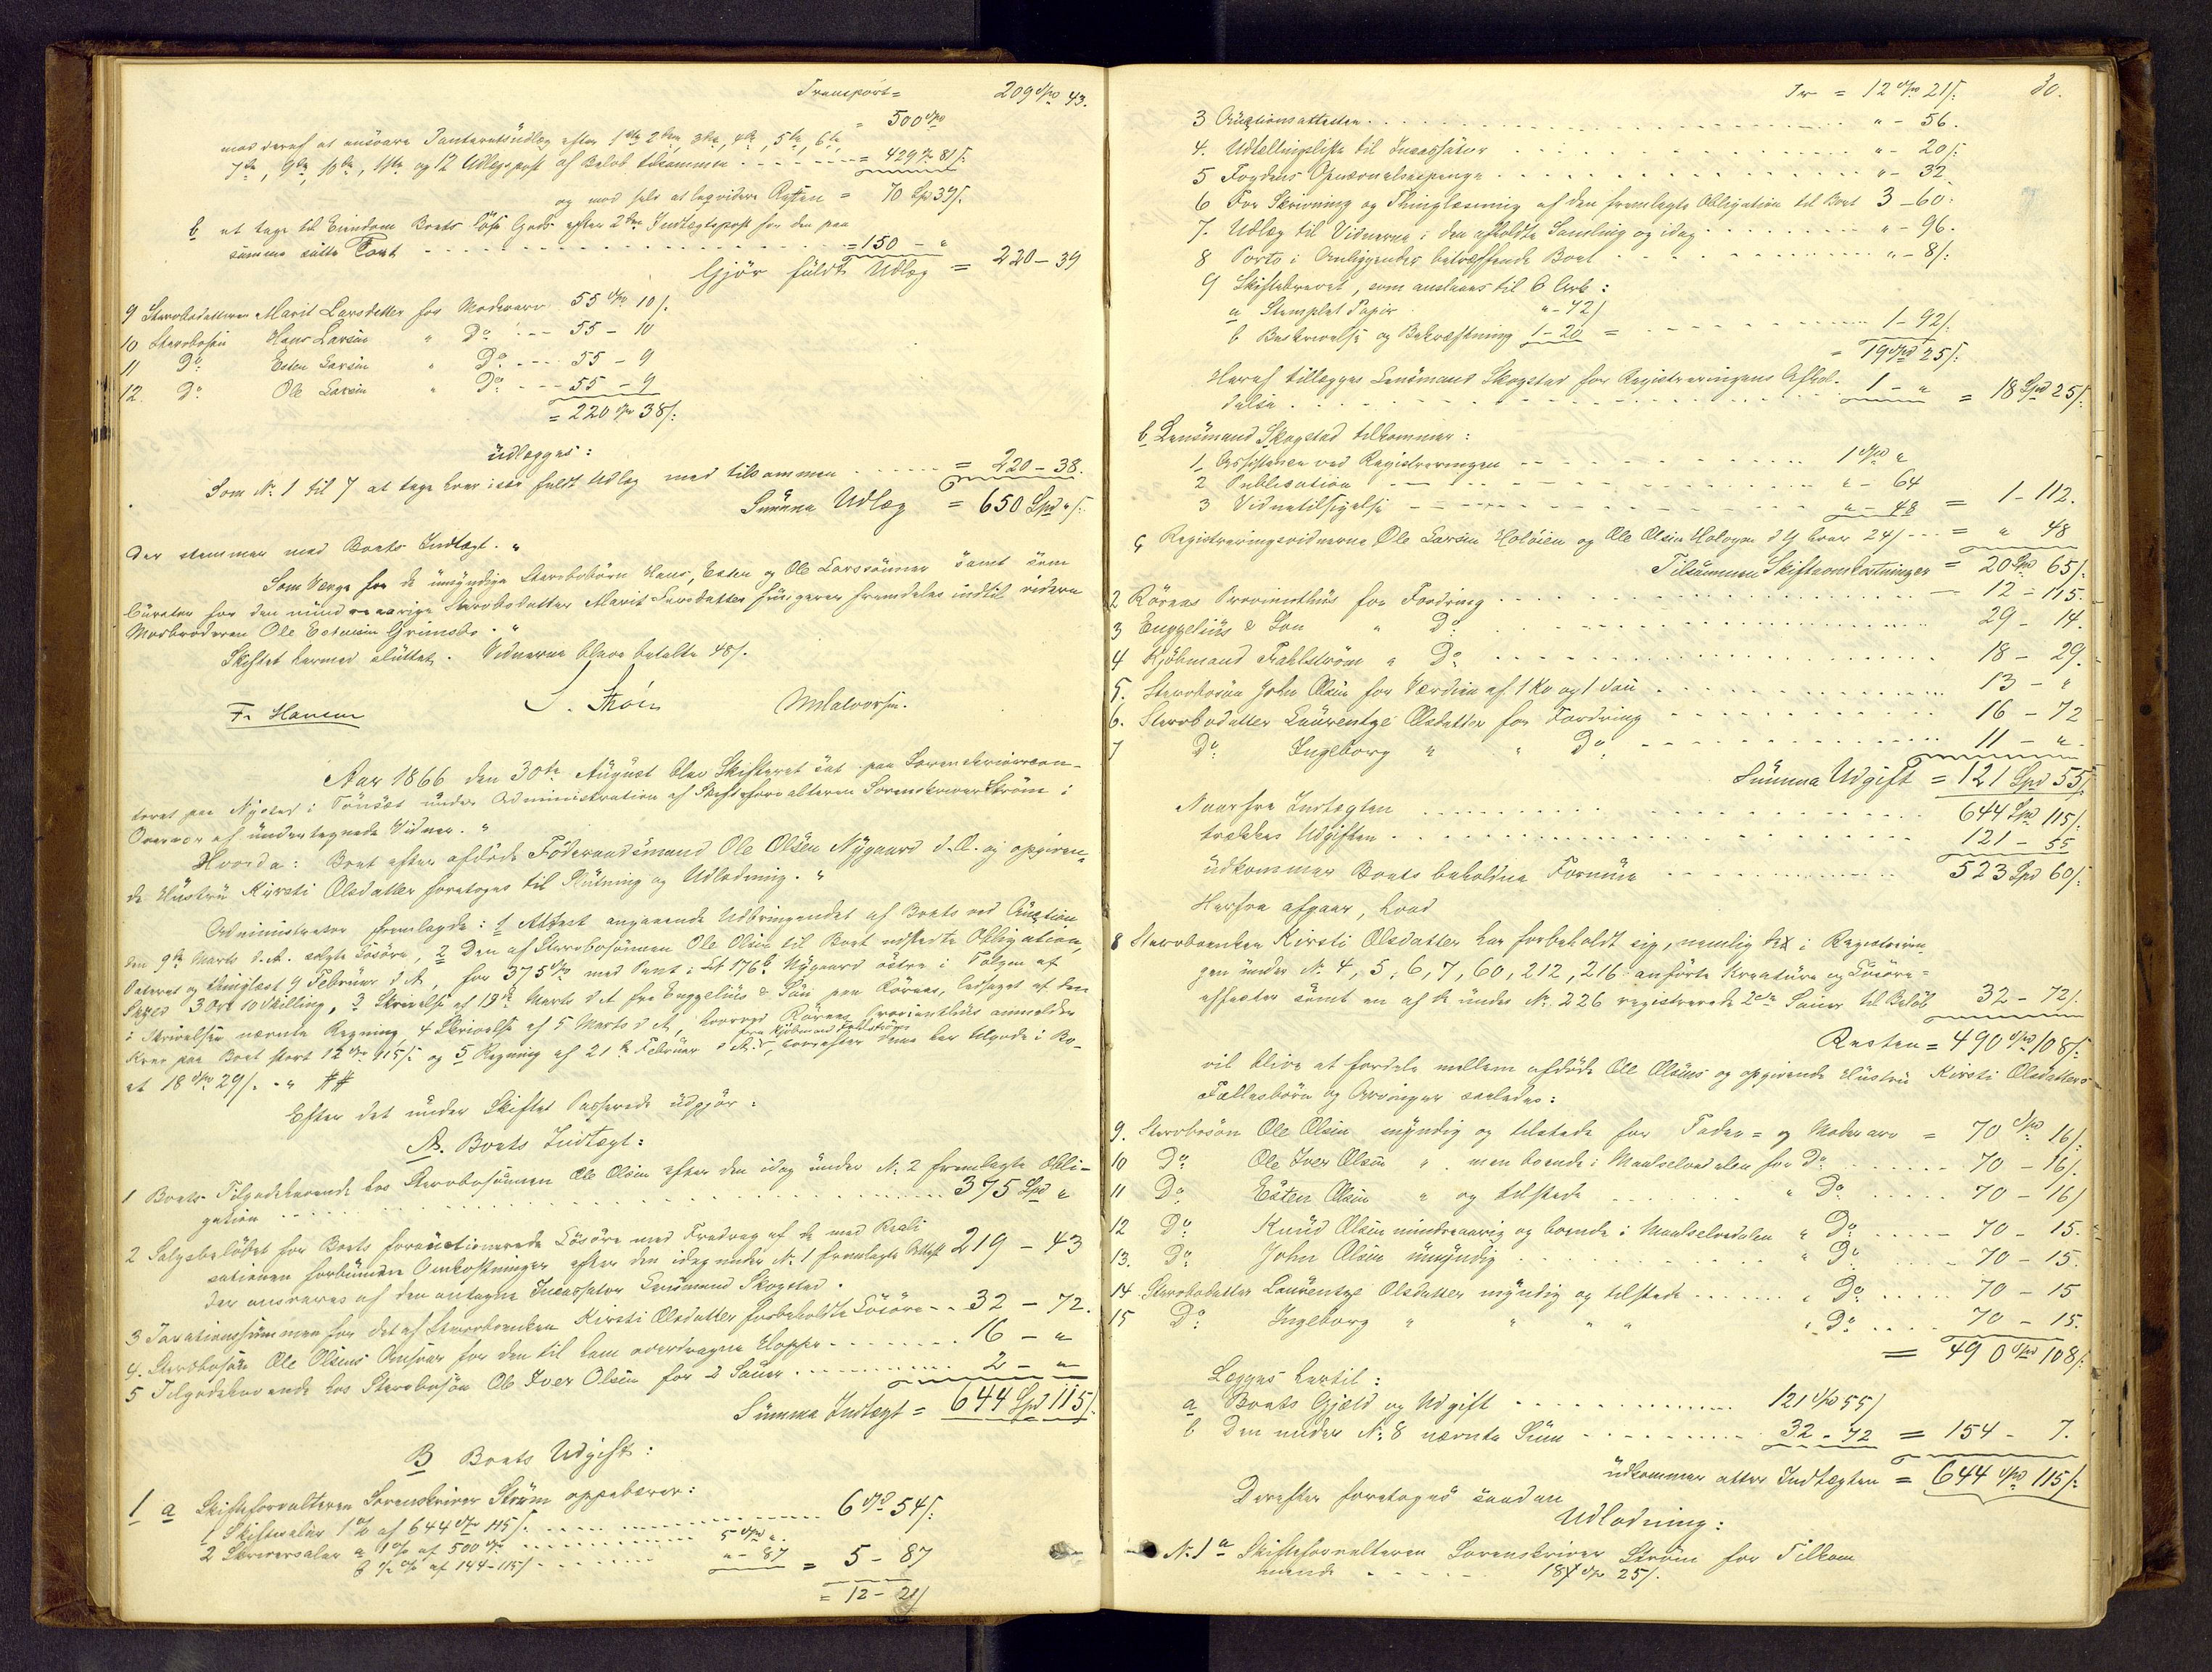 Transport = 209 Spd 43.
= 500 Spd
mod deraf at ansvare Panterets Udlæg efter 1ste 2den, 3die, 4de, 5te, 6te,
7de, 9de, 10de, 11te og 12 Udlægspost af Beløb tilsammen - - - = 429 Spd 81 s:
og mod selv at beholdere Resten = 70 Spd 39 s.
b at tage til Eiendom Boets Løse Gods efter 2den Indtægtspost for den paa
samme satte Taxt - - - = 150 - "
Gjør fuldt Udlæg = 220 - 39
9 Stervbodatteren Marit Larsdatter for Moderarv 55 Spd 10 s.
10 Stervbosøn Hans Larsen " Do - - - 55 - 10
11 Do Esten Larsen " Do - - - 55 - 9
12. Do Ole Larsen " Do - - - 55 - 9
= 220 Spd 38 s:
udlægges:
Som No 1 til 7 at tage hver sit fuldt Udlæg med tilsammen - - - = 220 - 38.
Summa Udlæg = 650 Spd " s:
Der stemmer med Boets Indtægt. "
Som Værge for de umyndige Stervbobørn Hans, Esten og Ole Larssønner samt som
Curator for den mindreaarige Stervbodatter Marit Larsdatter fungerer fremdeles indtil videre
Morbroderen Ole Estensen Grimsbo. "
Skiftet hermed sluttet. Vidnerne bleve betalte 48 s.
F. Hansen S. Strøm M Halvorsen.
Aar 1866 den 30te August blev Skifteret sat paa Sorenskrivercon-
toret paa Nysted i Tønset under Administration af Skifteforvalteren Sorenskriver Strøm i
Overvær af undertegnede Vidner. "
Hvorda: Boet efter afdøde Føderaadsmand Ole Olsen Nygaard d. Æ. og opgiven-
de Hustru Kirsti Olsdatter foretoges til Slutning og Udlodning. "
Administrator fremlagde: 1 Attest angaaende Udbringendet af Boets ved Auction
den 9de Marts d. A. solgte Løsøre, 2 Den af Stervbosønnen Ole Olsen til Boet udstedte Obligation,
dateret og thinglæst 9 Februar d. A., for 375 Spd med Pant i Lt 176 b Nygaard østre i Tolgen af
Skyld 3 Ort 10 Skilling, 3 Skrivelse af 13de Marts d. A. fra Engzelius & Søn paa Røraas, ledsaget af den
i Skrivelsen nævnte Regning, 4 Skrivelse af 5 Marts d. A., hvorved Røraas Provianthus anmelder
Krav paa Boet stort 12 Spd 115 s: og 5 Regning af 21de Februar d. A. fra Kjøbmand Fahlstrøm, hvorefter denne har tilgode i Bo-
et 18 Spd 29 s. - "
Efter det under Skiftet Passerede udgjør:
A. Boets Indtægt:
1 Boets Tilgodehavende hos Stervbosønnen Ole Olsen efter den idag under No 2 fremlagte Obli-
gation - - - 375 Spd "
2 Salgsbeløbet for Boets forauctionerede Løsøre med Fradrag af de med Reali
sationen forbundne Omkostninger efter den idag under No 1 fremlagte Attest 219 - 43
der ansvares af den antagne Incassator Lensmand Skogstad.
3 Taxationssummen for det af Stervboenken Kirsti Olsdatter forbeholdte Løsøre - - 32 - 72.
4. Stervbosøn Ole Olsens Ansvar for den til ham overdragne Hoppe - - - 16 - "
5 Tilgodehavende hos Stervbosøn Ole Iver Olsen for 2 Sauer - - - 2 - "
Summa Indtægt = 644 Spd 115 s.
B Boets Udgift:
1 a Skifteforvalteren Sorenskriver Strøm oppebærer:
1 Skiftesalær 1 % af 644 Spd 115 s. - - - 6 Spd 54 s:
2 Skriversalær a 1 % af 500 Spd - - - 5 Spd "
b ½ % af 144 - 115 s - - - " - 87 = 5 - 87
= 12 - 21 s
Tr = 12 Spd 21 s: 30.
3 Auctionsattesten - - - " - 56.
4. Udtællingsliste til Incassator - - - " - 20 s
5 Fogdens Opnævnelsespenge - - - " - 32.
6 For Skrivning og Thinglæsning af den fremlagte Obligation til Boet 3 - 60.
7. Udlæg til Vidnerne i den afholdte Samling og idag - - - " - 96.
8 Porto i Anliggender betræffende Boet - - - " - 8 s:
9 Skiftebrevet, som anslaaes til 6 Ark:
a Stemplet Papir " - 72 s
b Beskrivelse og Bekræftning 1 - 20 = - - - 1 - 92 s.
= 19 Spd 25 s:
Heraf tillægges Lensmand Skogstad for Registreringens Afhol-
delse - - - 1 - " = 18 Spd 25 s.
b Lensmand Skogstad tilkommer:
1 Assistance ved Registreringen - - - 1 Spd "
2 Publication - - - " - 64
3 Vidnetilsigelse - - - " - 48 = 1 - 112.
c Registreringsvidnerne Ole Larsen Holøien og Ole Olsen Holøyen d Y. hver 24 s - - = " 48
Tilsammen Skifteomkostninger = 20 Spd 65 s.
2 Røraas Provianthus for Fordring - - - 12 - 115.
3 Engzelius & Søn " Do - - - 29 - 14.
4 Kjøbmand Fahlstrøm " Do - - - 18 - 29.
5. Stervbosøn John Olsen for Værdien af 1 Ko og 1 Sau - - - 13 - "
6. Stervbodatter Laurentze Olsdatter for Fordring - - - 16 - 72
7 Do Ingeborg " " Do - - - 11 - "
Summa Udgift = 121 Spd 55 s
Naar fra Indtægten - - - 644 Spd 115 s:
trækkes Udgiften - - - 121 - 55
udkommer Boets beholdne Formue - - - 523 Spd 60 s:
Herfra afgaar, hvad
8 Stervboenken Kirsti Olsdatter har forbeholdt sig, nemlig det i Registrerin-
gen under No 4, 5, 6, 7, 60, 212, 216 anførte Kreature og Løsøre-
effecter samt en af de under No 226 registrerede 2de Sauer til Beløb 32 - 72 s.
Resten = 490 Spd 108 s.
vil blive at fordele mellem afdøde Ole Olsens og opgivende Hustru Kirsti Olsdatters
Fællesbørn og Arvinger saaledes:
9. Stervbosøn Ole Olsen myndig og tilstede for Fader- og Moderarv = 70 Spd 16 s:
10 Do Ole Iver Olsen " men boende i Maalselvedalen for Do - - - 70 - 16 s.
11 Do Esten Olsen " og tilstede - - - " Do - - - 70 - 16 s
12 Do Knud Olsen mindreaarig og boende i Maalselvedalen " Do - - - 70 - 15.
13. Do John Olsen umyndig - - - " Do - - - 70 - 15.
14 Stervbodatter Laurentze Olsdatter myndig og tilstede - - - " Do - - - 70 - 15
15 Do Ingeborg " " " " " Do - - - 70 - 15.
= 490 Spd 108 s:
Lægges hertil:
a Boets Gjæld og Udgift - - - 121 Spd 55 s
b Den under No 8 nævnte Sum - - - 32 - 72 = 154 - 7.
udkommer atter Indtægten = 644 Spd 115 s:
Derefter foretoges saadan
Udlodning:
No 1 a Skifteforvalteren Sorenskriver Strøm for Tilkom-
mende - - - 18 Spd 25 s.